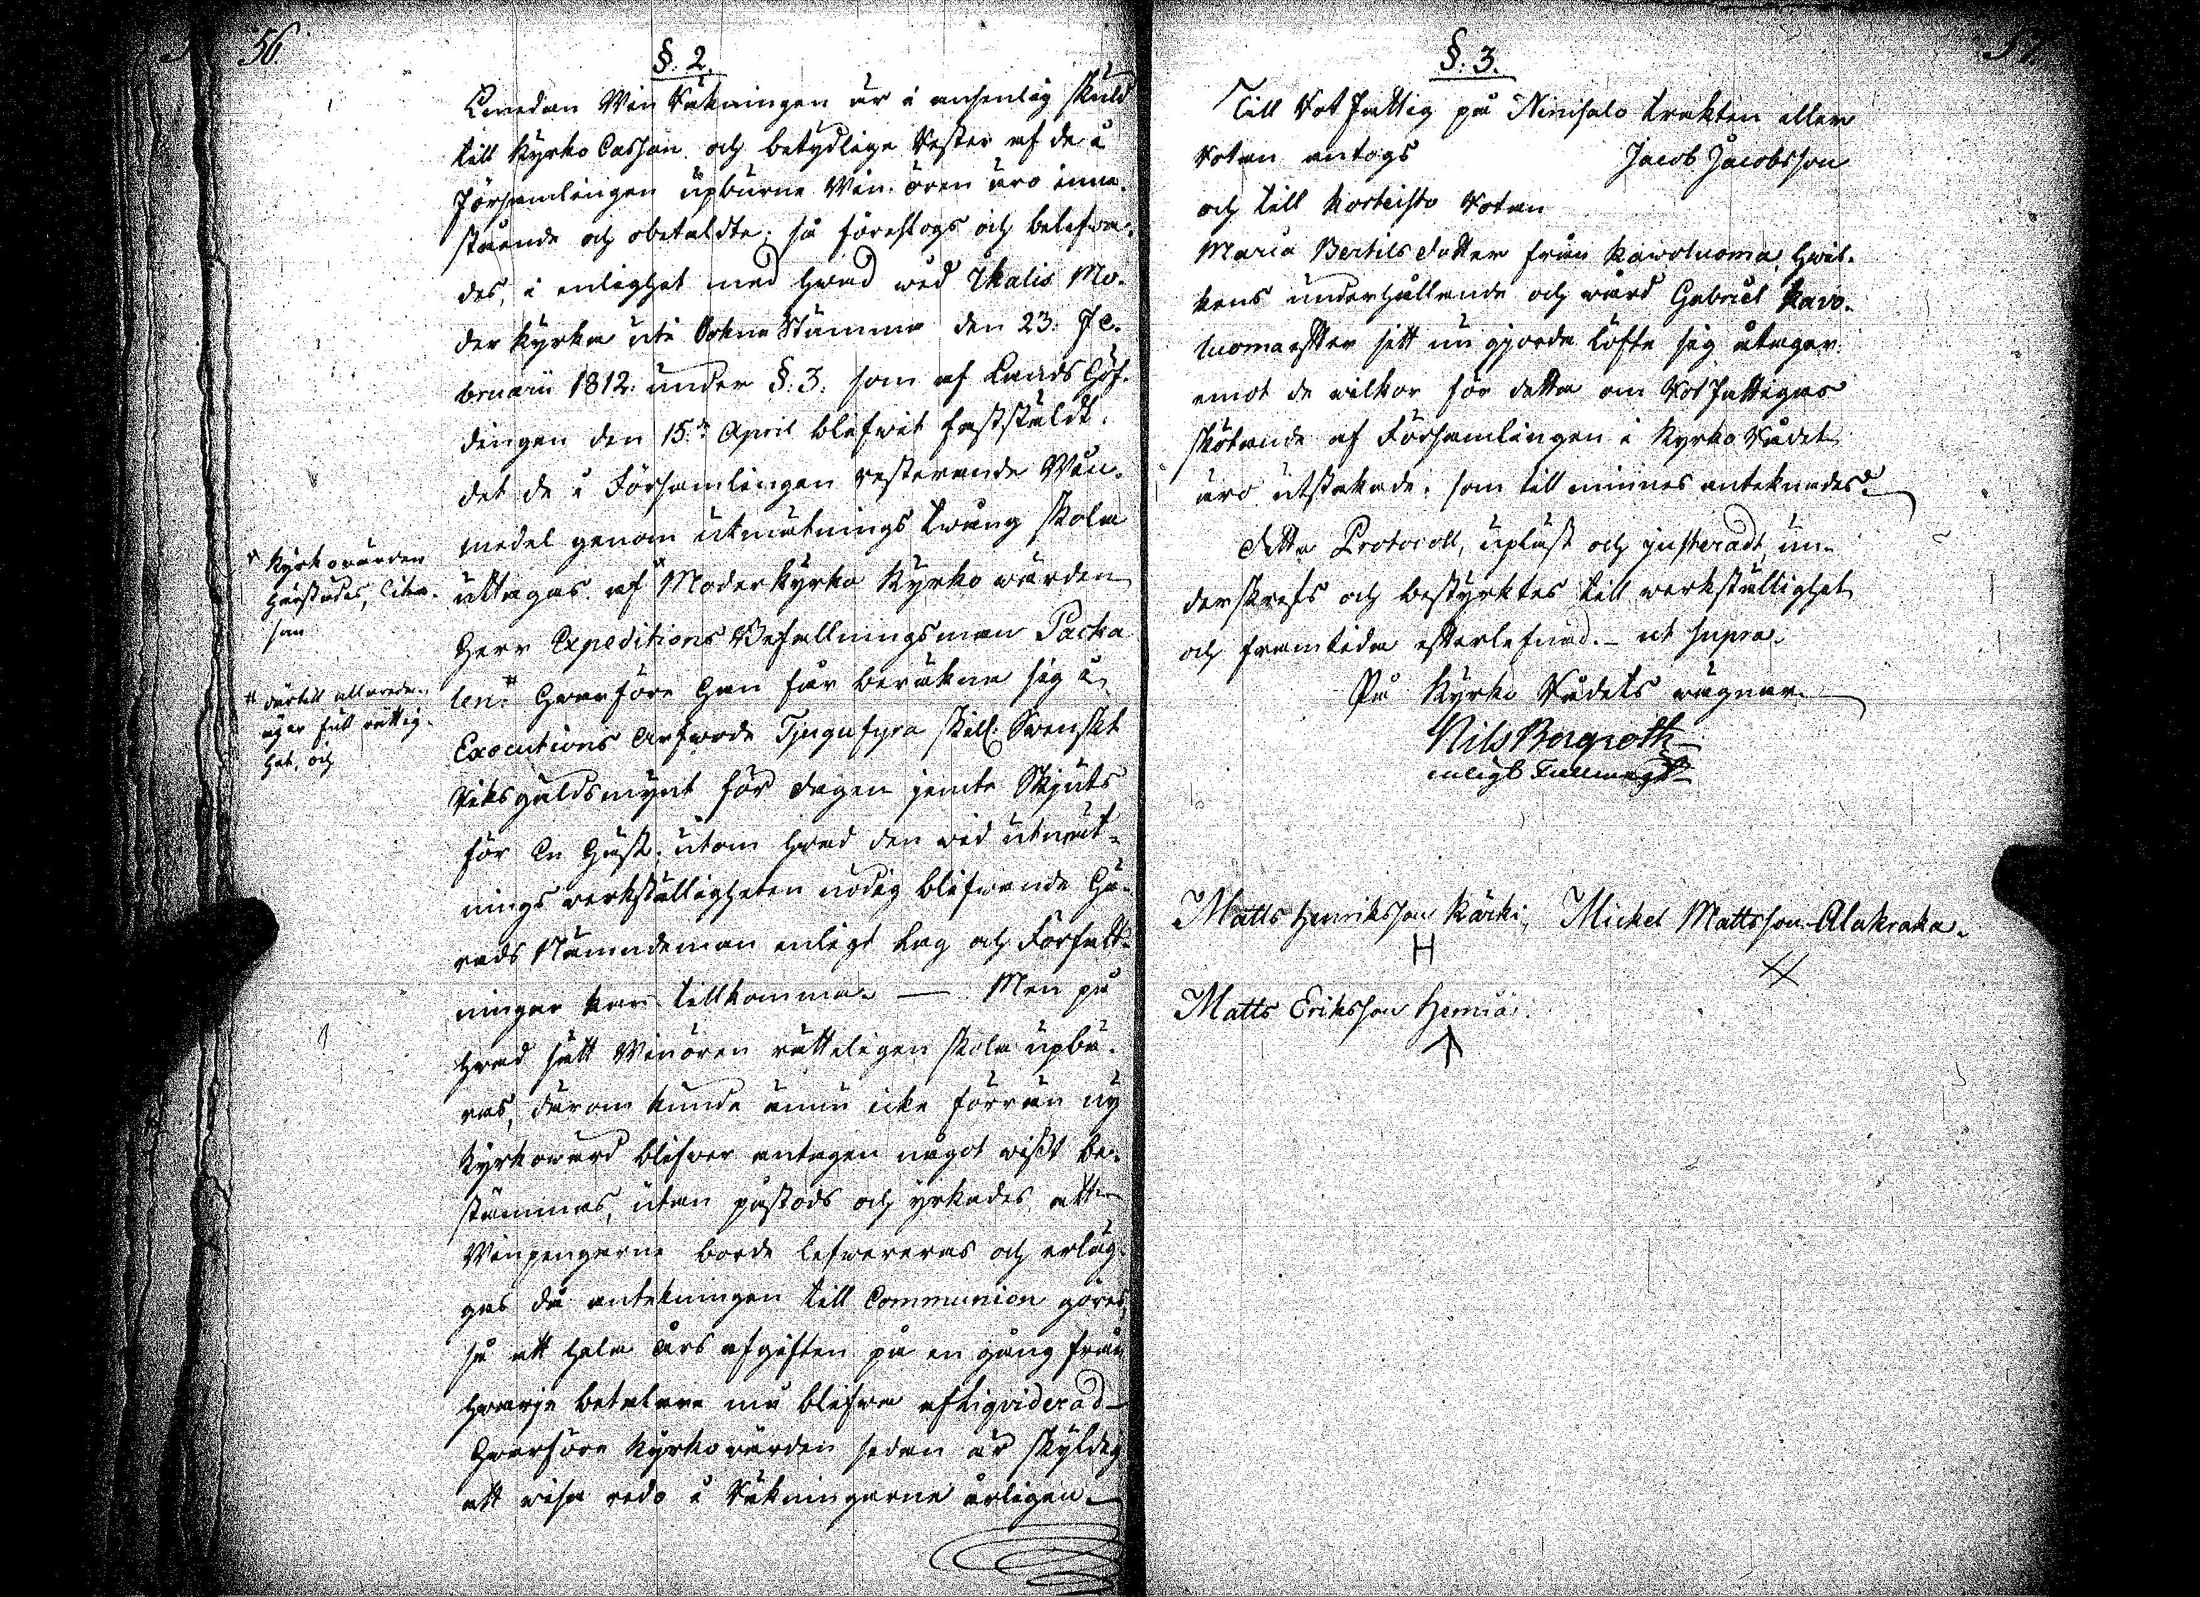 56.
§. 2.
Emedan Win Räkningen är i ansenlig skuld
till Kyrko Cassan och betydlige Rester af de i
församlingen upburne Win ören äro inne-
stående och obetaldte; så föreslogs och belefwa-
des, i enlighet med hwad wid Ikalis Mo-
der Kyrka uti Sokne Stämma den 23. Fe-
bruarii 1812. under §. 3. som af Lands Höf-
dingen den 15.de April blifwit fastställdt,
det de i Församlingen resterande Win-
medel genom utmätnings twång skola
uttagas af * Moderkyrko Kyrkowärden
Herr Expeditions Befallningsman Packa
len # Hwarföre Han får beräkna sig i
Executions Arfwode Tjugufyra skill. Svenskt
Riksgäldsmynt för dagen jemte Skjuts
för En Häst, utom hwad den wid utmät-
nings werkställigheten nödig blifwande Hä-
rads Nämndeman enligt Lag och Författ-
ningar kan tillkomma. — Men på
hwad sätt Winören rätteligen skola upbä-
ras, därom kunde ännu icke förrän ny
Kyrkowärd blifwer antagen något wisst be-
stämmas, utan påstods och yrkades att
Winpengarne borde lefwereras och erläg-
gas då antekningen till Communion göres,
så att hela Års afgiften på en gång från
hwarje betalare må blifwa afliqviderad
Hwarföre Kyrkowärden sedan är skyldig
att wisa redo i Räkningarne årligen.
* Kyrkowärden
härstädes,
# därtill allaredan
äger full rättig-
het, och
57.
§. 3.
Till Rot fattig på Niinisalo trakten eller
Roten antogs Jacob Jacobsson
och till Korteisto Roten
Maria Bertils dotter från Kawoluoma, hwil-
kens underhållande och wård Gabriel Kavo-
luoma efter sitt nu gjorda löfte sig åtager
emot de wilkor för detta om Rot fattigas
skötande af Församlingen i Kyrko Rådet
äro utstakade; som till minnes anteknades.
Detta Protocoll, upläst och justeradt, un-
derskrefs och bestyrktes till werkställighet
och framtida efterlefnad. — ut supra.
På Kyrko Rådets wägnar
Nils Bergroth
enligt Fullmagt
Matts Henriksson Kärki, Michel Mattsson Alakraka.
H
Matts Eriksson